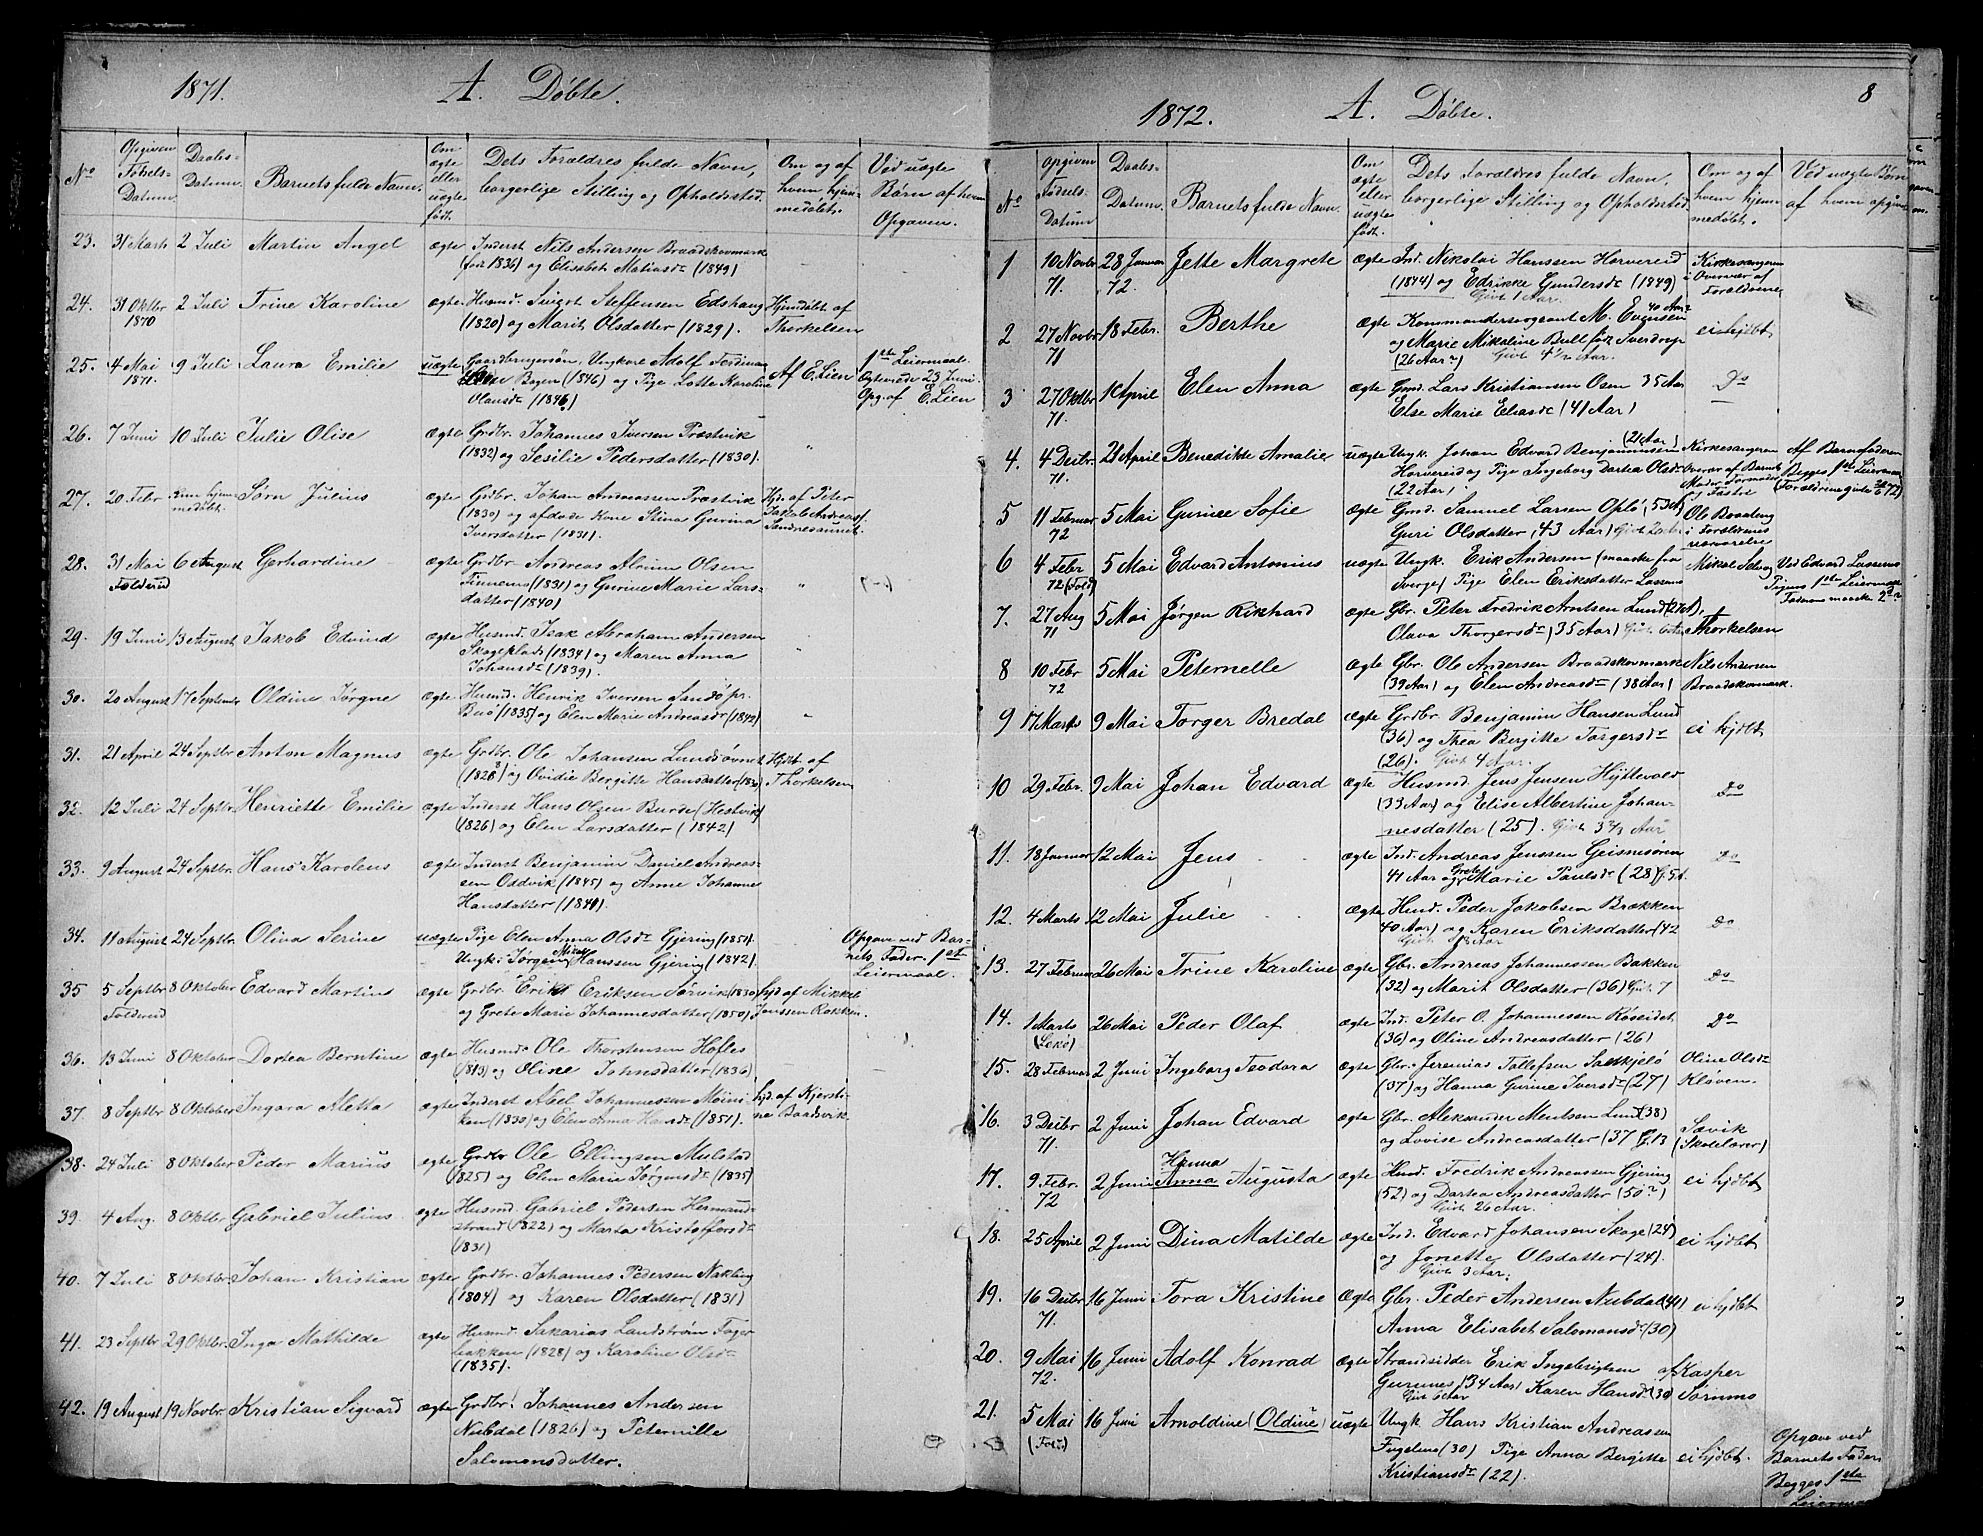 1871.
A. Döbte.
No
Opgiven
Fødsels-
Datum.
Daabs-
Datum.
Barnets fulde Navn.
Om
ægte
eller
uægte
født.
Dets Forældres fulde Navn,
borgerlige Stilling og Opholdssted.
Om og af
hvem hjem-
medøbt.
Ved uægte
Børn af hvem
Opgaven.
23. 31 Marts 2 Juli Martin Angel ægte Inderst Nils Andersen Braadskovmark
(født 1836) og Elisabet Matiasdr (1849)
24. 31 Oktbr 2 Juli Trine Karoline ægte Husmd. Sivert Steffensen Edshaug Hjmdøbt af
1870 (1820) og Marit Olsdatter (1829). Thorkelsen
25. 4 Mai 9 Juli Laura Emilie uægte Gaardbrugersøn, Ungkarl Adolf Ferdinan Af E. Lien 1ste Leiermaal.
1871. Bogen (1846) og Pige Lotte Karoline Egteviede 23 Juni.
Olausdr (1846) Opg. af E. Lien
26. 7 Juni 10 Juli Julie Olise ægte Grdbr. Johannes Iversen Præstvik
(1832) og Sesilie Pedersdatter (1830).
27. 20 Febr Kun hjem- Sørn Julius ægte Grdbr. Johan Andreassen Præstvik Hjd. af Peter
medøbt. (1830) og afdøde Kone Stina Gurina Jakob Andreas.
Iversdatter (1831). Sandresaunet.
28. 31 Mai 6 August Gerhardine ægte Grdbr. Andreas Olsen
Foldereid (1831) og Gurine Marie Lars-
datter (1840)
29. 19 Juni 13 August Jakob Edvind ægte Husmd. Isak Abraham Andersen
Skageplads (1834) og Maren Anna
Johansdr (1839).
30. 20 August 17 September Oldine Jørgne ægte Husmd. Henrik Iversen
(1835) og Elen Marie Andreasdr (1842)
31. 21 April 24 Septbr Anton Magnus ægte Grdbr. Ole Johansen Hjdbt. af
(1828) og Ovidie Bergitte Hansdatter Thorkelsen
32. 12 Juli 24 Septbr Henriette Emilie ægte Inderst Hans Olsen Burde (Hestvik)
(1826) og Elen Larsdatter (1842)
33. 9 August 24 Septbr. Hans Karolens ægte Inderst Benjamin Daniel Andreas-
sen Oddvik (1845) og Anne Johanna
Hansdatter (1841).
34. 11 August 24 Septbr. Oliva Serine uægte Pige Elen Anna Olsdr Gjering (1851). Opgave ved Bar-
Ungk: Jørgen Hanssen Gjering (1842). nets Fader. 1st
Leiermaal.
35 5 Septbr 8 Oktober Edvard Martin ægte Grdbr. Erik Eriksen Sørvik (1830) Hjd af Mikkel
Foldereid og Grete Marie Johannesdatter (1850) Jonssen Rokken.
36. 13 Juni 8 Oktober Dortea Berntine ægte Husmd. Ole Thorstensen Hofles
(1813) og Oline Johnsdatter (1836)
37. 8 Septbr 8 Oktober Ingara Aletta ægte Inderst Abel Johannessen Hjd. af Kjersti-
(1830) og Elen Anna Hansdr (1851). ne Baadvik.
38. 24 Juli 8 Oktober Peder Marius ægte Grdbr Ole Ellingsen Mulstad
(1825) og Elen Marie Jørgensdr (1835)
39. 4 Aug. 8 Oktbr Gabriel Julius. ægte Husmd. Gabriel Pedersen Hermand-
strand (1822) og Marta Kristoffersdr
(1831)
40. 7 Juli 8 Oktbr. Johan Kristian ægte Grdbr. Johannes Pedersen Nakling
(1804) og Karen Olsdatter (1831)
41. 23 Septbr 29 Oktbr. Inga Mathilde ægte Husmd. Sakarias Landstrøm Fager-
bakken (1828) og Karoline Olsdr
(1835).
42. 19 August 19 Novbr. Kristian Sigvard ægte Grdbr. Johannes Andersen
Nubdal (1826) og Peternille
Salomonsdatter.
1872.
A. Döbte.
8
No
Opgiven
Fødsels-
Datum
Daabs-
Datum.
Barnets fulde Navn.
Om
ægte
eller
uægte
født.
Dets Forældres fulde Navn,
borgerlige Stilling og Opholdssted.
Om og af
hvem hjem-
medøbt.
Ved uægte Børn
af hvem opgiven
1 10 Novbr 28 Januar Jette Margrete ægte Ind. Nikolai Hanssen Horvereid Kirkesangeren
71. 72. (1844) og Edrikke Gundersdr (1849) i Overvær af
Givt 1 Aar. Forældrene
2 27 Novbr 18 Febr. Berthe ægte Kommandersergeant M. Evensen 40 Aar
71 og Marie Mikaline Bull født Sverdrup ei hjdbt
(26 Aar) Givt 4½ Aar.
3 27 Oktbr 1 April Elen Anna ægte Grnd. Lars Kristiansen Osen 35 Aar Do
71. Else Marie Eliasdr (41 Aar)
4. 4 Desbr. 21 April Benedikte Amalie uægte Ungk. Johan Edvard Benjaminsen (21 Aar) Kirkesangeren Af Barnefaderen
71. Horvereid og Pige Ingeborg Dortea Olsdr Overvær af Barnets Begges 1ste Leiermaal
(22 Aar). Moder (Forældrene givte
5 11 Februar 5 Mai Gurine Sofie ægte Gmd. Samuel Larsen Oplö (53 A) Ole
72 Guri Olsdatter, (43 Aar) i Forældrenes
nærværelse
6 4 Febr 5 Mai Edvard Antonius uægte Ungk. Erik Andersen (maaske fra Mikal Ved Edvard Lassens
72 (Fold) Sverge) Pige Elen Eriksdatter Lassens Pigens 1ste Leiermaal
Faderens maaske 2det
7. 27 Aug 5 Mai Jørgen Rikhard ægte Gbr. Peter Fredrik Arntsen Lund (27 A), Thorkelsen
71 Olava Thorgersdr (35 Aar)
8 10 Febr 5 Mai Peternelle ægte Gbr. Ole Andersen Braadskovmark Nils Andersen
72 (39 Aar) og Elen Andreasdr (38 Aar) Braadskovmark.
9 17 Marts 9 Mai Torger Bredal ægte Grdbr. Benjamin Hansen Lund ei hjdbt
(36) og Thea Bergitte Torgersdr
(26). Givt 4 Aar.
10 29 Febr. 9 Mai Johan Edvard ægte Husmd. Jens Jensen Hyttevold Do
(33 Aar) og Elise Albertine Johan-
nesdatter (25). Givt 3⅔ Aar
11. 18 Januar 12 Mai Jens ægte Ind. Andreas Jenssen Geisnesören Do
41 Aar og Grete Marie Paulsdr (28) G. 5 A.
12. 4 Marts 12 Mai Julie ægte Husd. Peder Jakobsen Brækken Do
40 Aar) og Karen Eriksdatter (42
Givt 18 Aar
13. 27 Februar 26 Mai Trine Karoline ægte Gbr. Andreas Johannessen Bakken Do
(32) og Marit Olsdatter (36) Givt 7
14. 1 Marts 26 Mai Peder Olaf ægte Ind. Peter O. Johannessen Roseidet Do
(Lekö) (36) og Oline Andreasdatter (26)
15. 28 Februar 2 Juni Ingeborg Teodora ægte Gbr. Jeremias Tollefsen Oline Olsdr
(37) og Hanna Gurine Iversdr (27) Kløven.
16. 3 Desbr 2 Juni Johan Edvard ægte Gbr. Aleksander Mentsen Lund (38) Sævik
71. og Lovise Andreasdatter (37 G. 13 (Skolelærer)
17. 9 Febr. 2 Juni Hanna
Anna Augusta ægte Husd. Fredrik Andreassen Gjering ei hjdbt
72 (52) og Dortea Andreasdatter (50?)
Givt 26 Aar.
18. 25 April 2 Juni Dina Matilde ægte Ind. Edvard Johansen Skage (24) ei hjdbt
og Jonette Olsdatter (24).
Givt 3 Aar.
19. 16 Desbr 16 Juni Tora Kristine ægte Gbr. Peder Andersen Nubdal (41) ei hjdbt
71. Anna Elisabet Salomonsdr (30)
20. 9 Mai 16 Juni Adolf Konrad ægte Strandsidder Erik Ingebrigtsen af Kasper
72. Gutsnes (34 Aar) Karen Hansdr (30 Sørnmo
Givt 6 Aar
21. 5 Mai 16 Juni Arnoldine (Oldine) uægte Ungk Hans Kristian Andreassen Opgave ved
(Fold.) (30) Pige Anna Bergitte ei hjdbt. Barnets Fader
Kristiansdr (22). Begges 1ste
Leiermaal